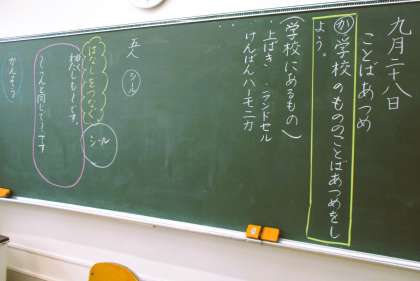 九月二十八日
ことばあつめ
か 学校のもののことばあつめをし
よう。
(学校にあるもの)
・上ばき ・ランドセル
・けんばんハーモニカ
五人 シール
はなしをつなぐ
シール
ぼく
わたしも〜です。
〜さんと同じで〜です
かんそう